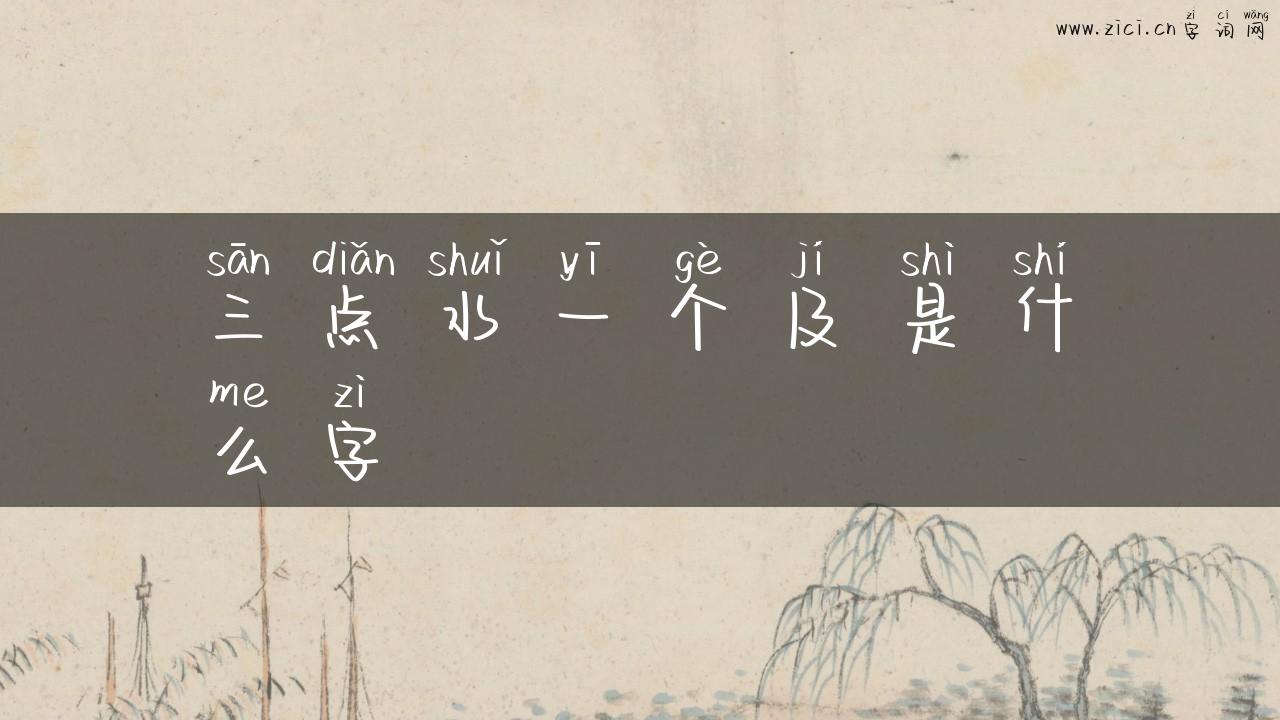 www.zici.cn字词网
zì cí wǎng
sān diǎn shuǐ yī gè jí shì shí
三点水一个及是什
me zì
么字